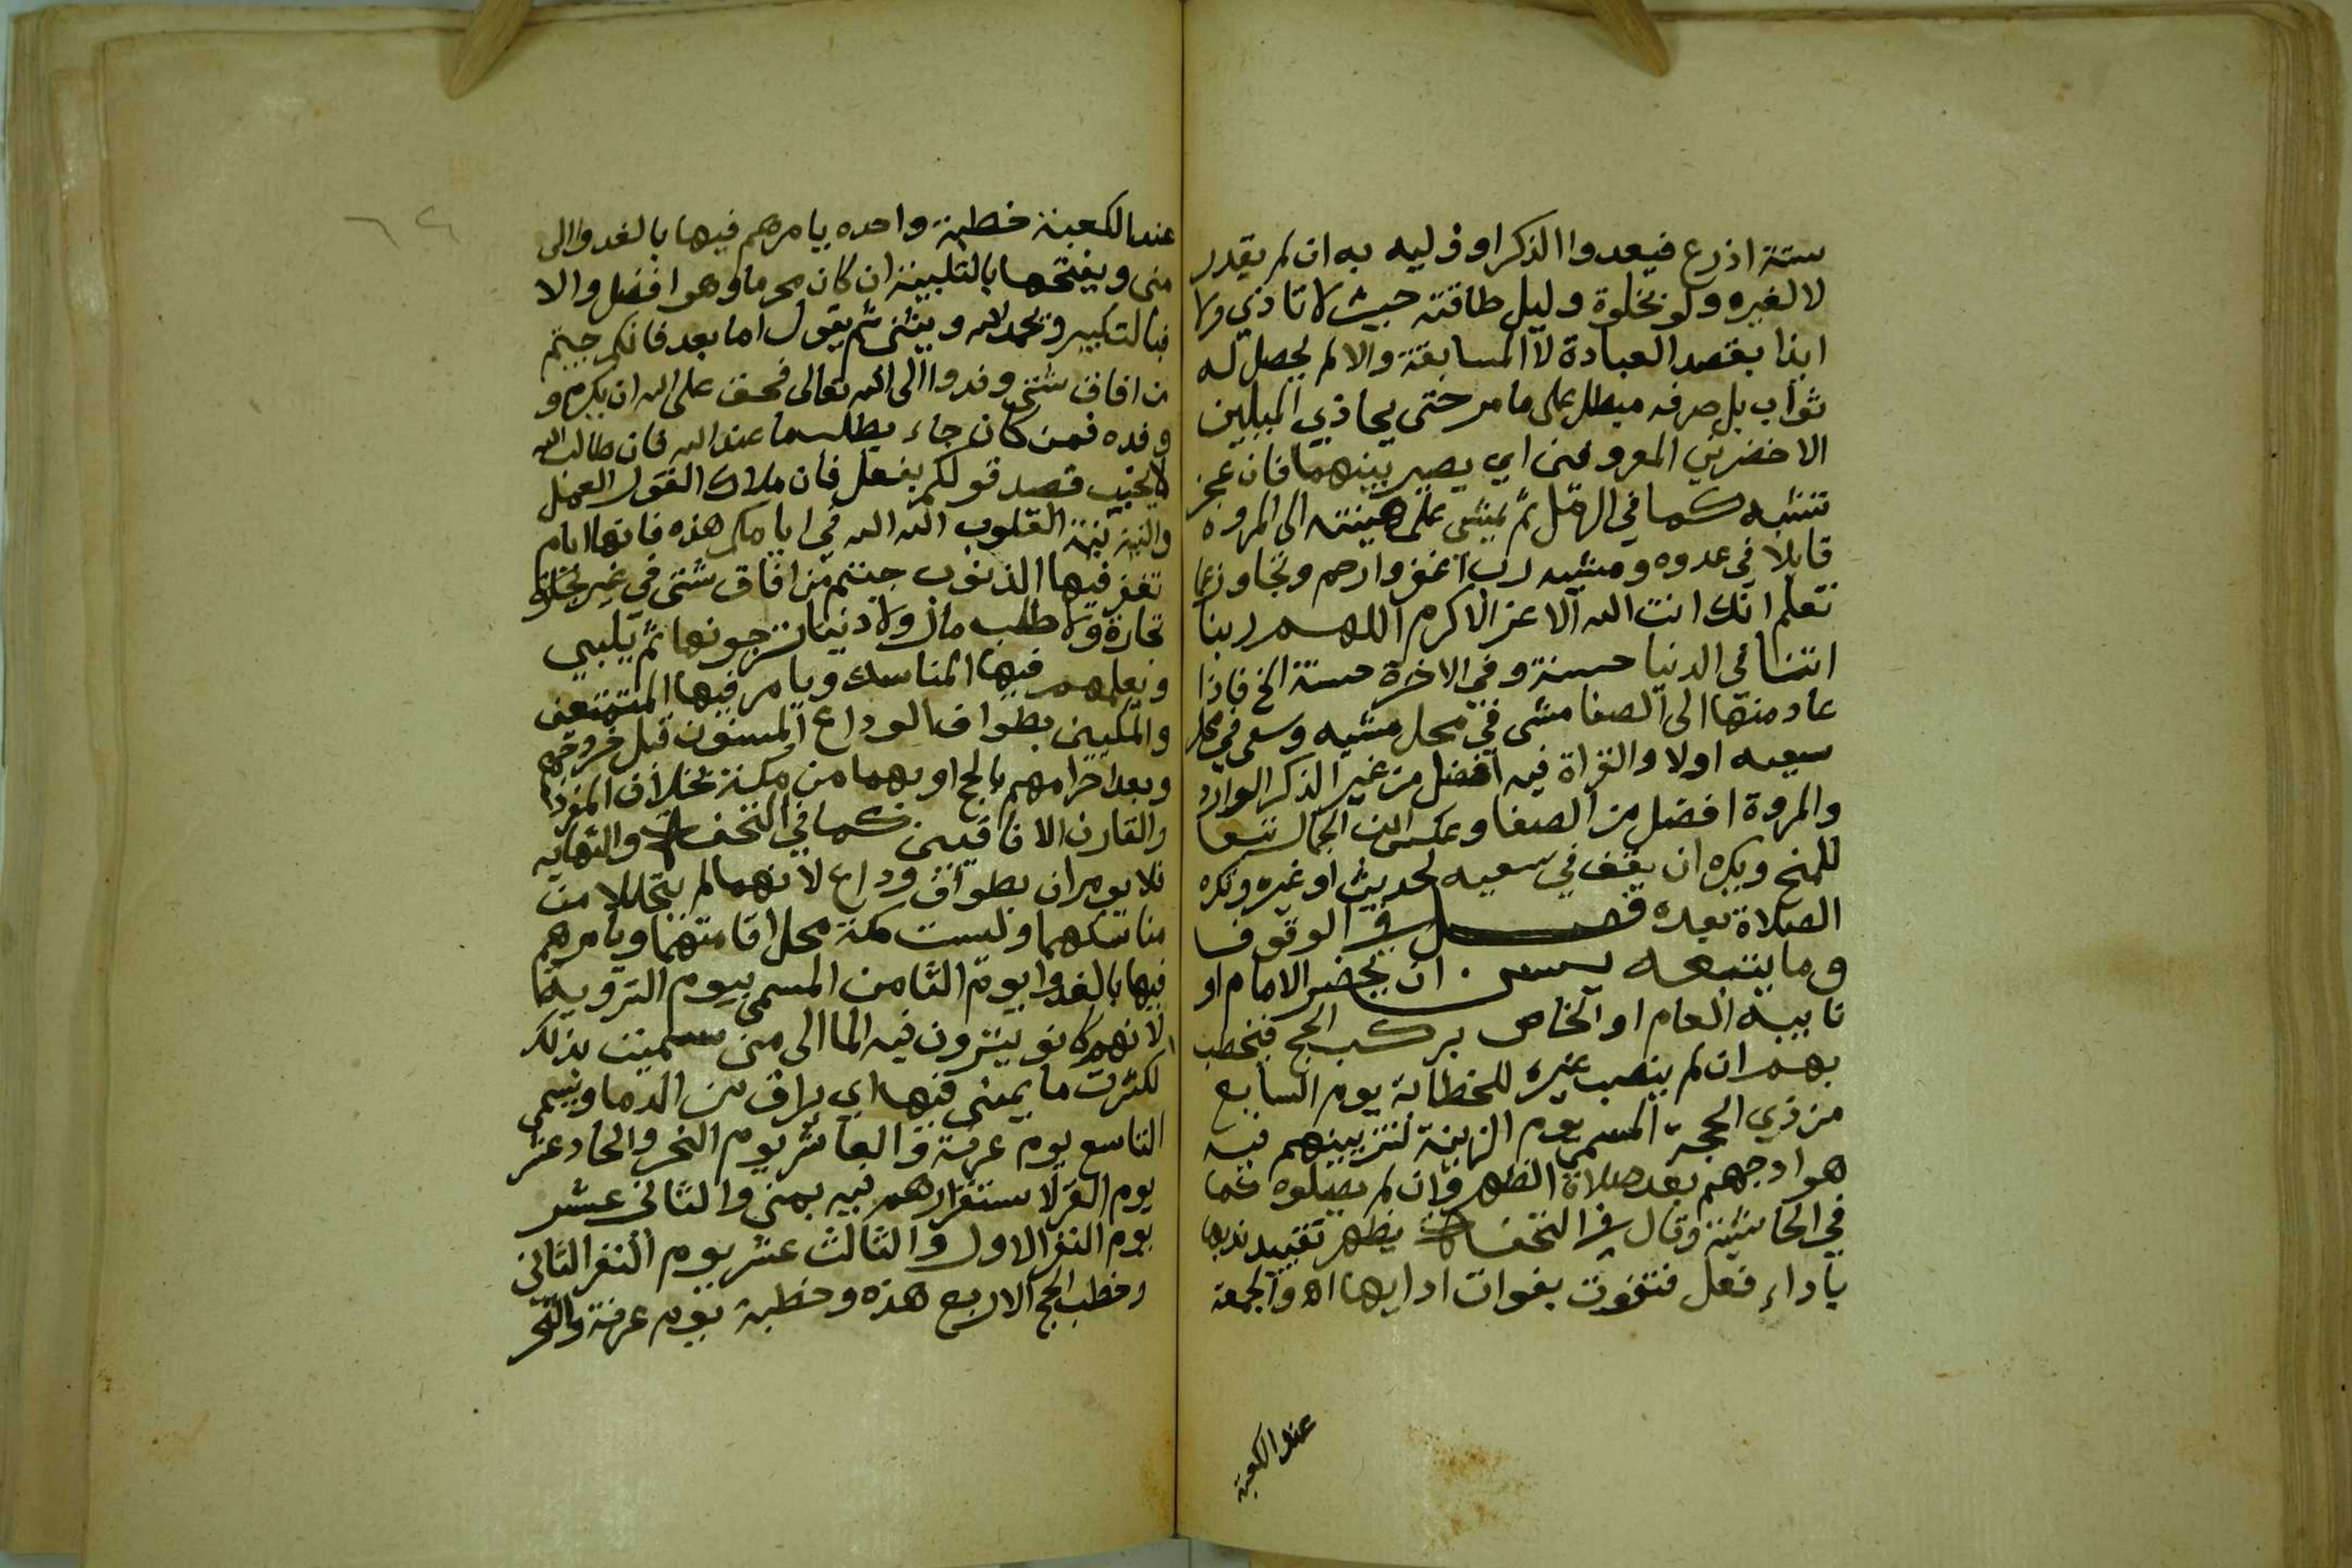 ستة اذرع فيعدوا الذكر او وليه به ان لم يقدر
لا لغيره ولو بخلوة وليل طاقته حيث لا تاذي ولا
ايذا بقصد العبادة لا المسابقة والا لم يحصل له
ثواب بل صرفه مبطل على ما مر حتى يحاذي الميلين
الاخضرين المعروفين اي يصير بينهما فان عجز
تشبه كما في الرمل ثم يمشي على هينته الى المروه
قايلا في عدوه ومشيه رب اغفر وارحم وتجاوز عما
تعلم انك انت الله الاعز الاكرم اللهم ربنا
اتنا في الدنيا حسنة وفي الاخرة حسنة الخ فاذا
عاد منها الى الصفا مشى في محل مشيه وسعى في محل
سعيه اولا والقراة فيه افضل من غير الذكر الوارد
والمروة افضل من الصفا وعكس الجمال تبعا
للمنح ويكره ان يقف في سعيه لحديث او غيره وتكره
الصلاة بعده فصل في الوقوف
وما يتبعه يسن ان يحضر الامام او
نايبه العام او الخاص بركب الحج فيخطب
بهم ان لم ينصب غيره للخطابة يوم السابع
من ذي الحجة المسمى يوم الزينة لتزيينهم فيه
هوادجهم بعد صلاة الظهر وان لم يصلوه كما
في الحاشية وقال في التحفة يظهر تقييد ندبها
باداء فعل فتفوت بفوات ادايها اه والجمعة
عند الكعبة
عند الكعبة خطبة واحده يامرهم فيها بالغدو الى
منى ويفتحها بالتلبية ان كان محرما وهو افضل والا
فبالتكبير ويحمد الله ويثني ثم يقول اما بعد فانكم جيتم
من افاق شتى وفدوا الى الله تعالى فحق على الله ان يكرم و
وفده فمن كان جاء يطلب ما عند الله فان طالب الله
لا يخيب فصدقوا قولكم بفعل فان ملاك القول الفعل
والنية نية القلوب الله الله في ايامكم هذه فانها ايام
تغفر فيها الذنوب جيتم من افاق شتى في غير تجارة
تجارة ولا طلب مال ولا دنيا ترجونها ثم يلبي
ويعلمهم فيها المناسك ويامر فيها المتمتعين
والمكيين بطواف الوداع المسنون قبل خروجهم
وبعد احرامهم بالحج او بهما من مكة بخلاف المفرد
والقارن الافاقيين كما في التحفة والنهاية
فلا يومران بطواف وداع لانهما لم يتحللا من
مناسكهما وليست مكة محل اقامتهما ويامرهم
فيها بالغدوا يوم الثامن المسمى بيوم التروية
لانهم كانو يتروون فيه الما الى منى سميت بذلك
لكثرت ما يمنى فيها اي يراق من الدما ويسمى
التاسع يوم عرفة والعاشر يوم النحر والحاد عشر
يوم القر لاستقرارهم فيه بمنى والثاني عشر
يوم النفر الاول والثالث عشر يوم النفر الثاني
وخطب الحج الاربع هذه وخطبة يوم عرفة والنحر